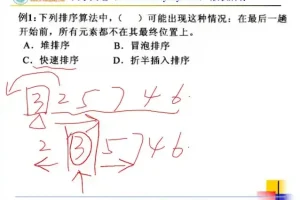 例1:下列排序算法中,( )可能出现这种情况:在最后一趟
开始前,所有元素都不在其最终位置上。
A、堆排序 B、冒泡排序
C、快速排序 D、折半插入排序
3 2 5 7 4 6
2 3 5 7 4 6